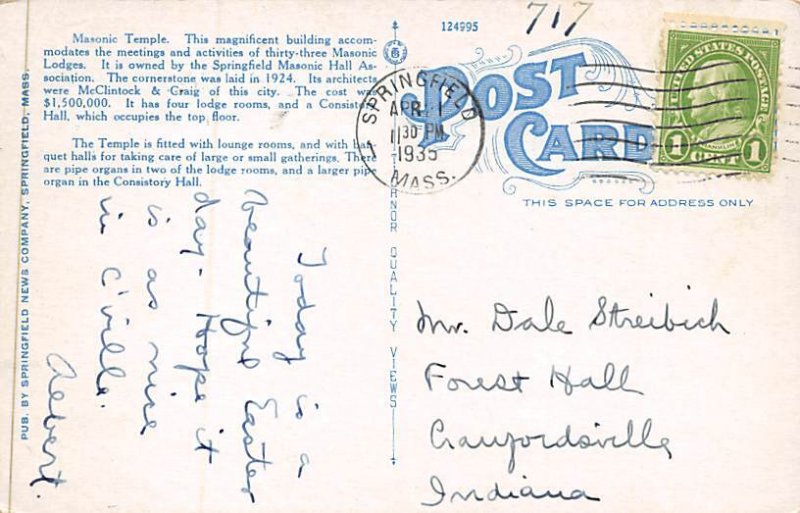 Masonic Temple. This magnificent building accom-
modates the meetings and activities of thirty-three Masonic
Lodges. It is owned by the Springfield Masonic Hall As-
sociation. The cornerstone was laid in 1924. Its architects
were McClintock & Craig of this city. The cost was
$1,500,000. It has four lodge rooms, and a Consistory
Hall, which occupies the top floor.
The Temple is fitted with lounge rooms, and with ban-
quet halls for taking care of large or small gatherings. There
are pipe organs in two of the lodge rooms, and a larger pipe
organ in the Consistory Hall.
PUB. BY SPRINGFIELD NEWS COMPANY, SPRINGFIELD, MASS.
Today is a
beautiful Easter
day. Hope it
is as nice
in C'ville.
Albert.
124995
717
POST
CARD
SPRINGFIELD
APR
30 PM
1935
MASS.
UNITED STATES POSTAGE
FRANKLIN
1 CENT 1
THIS SPACE FOR ADDRESS ONLY
QUALITY VIEWS
Mr. Dale Streibich
Forest Hall
Crawfordsville
Indiana